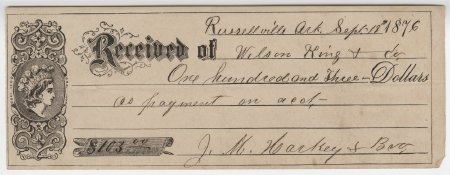 Russellville Ark Sept 18th 1876
Received of Wilson King & Co
One hundred and Three Dollars
as payment on acct
$103.00 J. M. Harkey & Bro